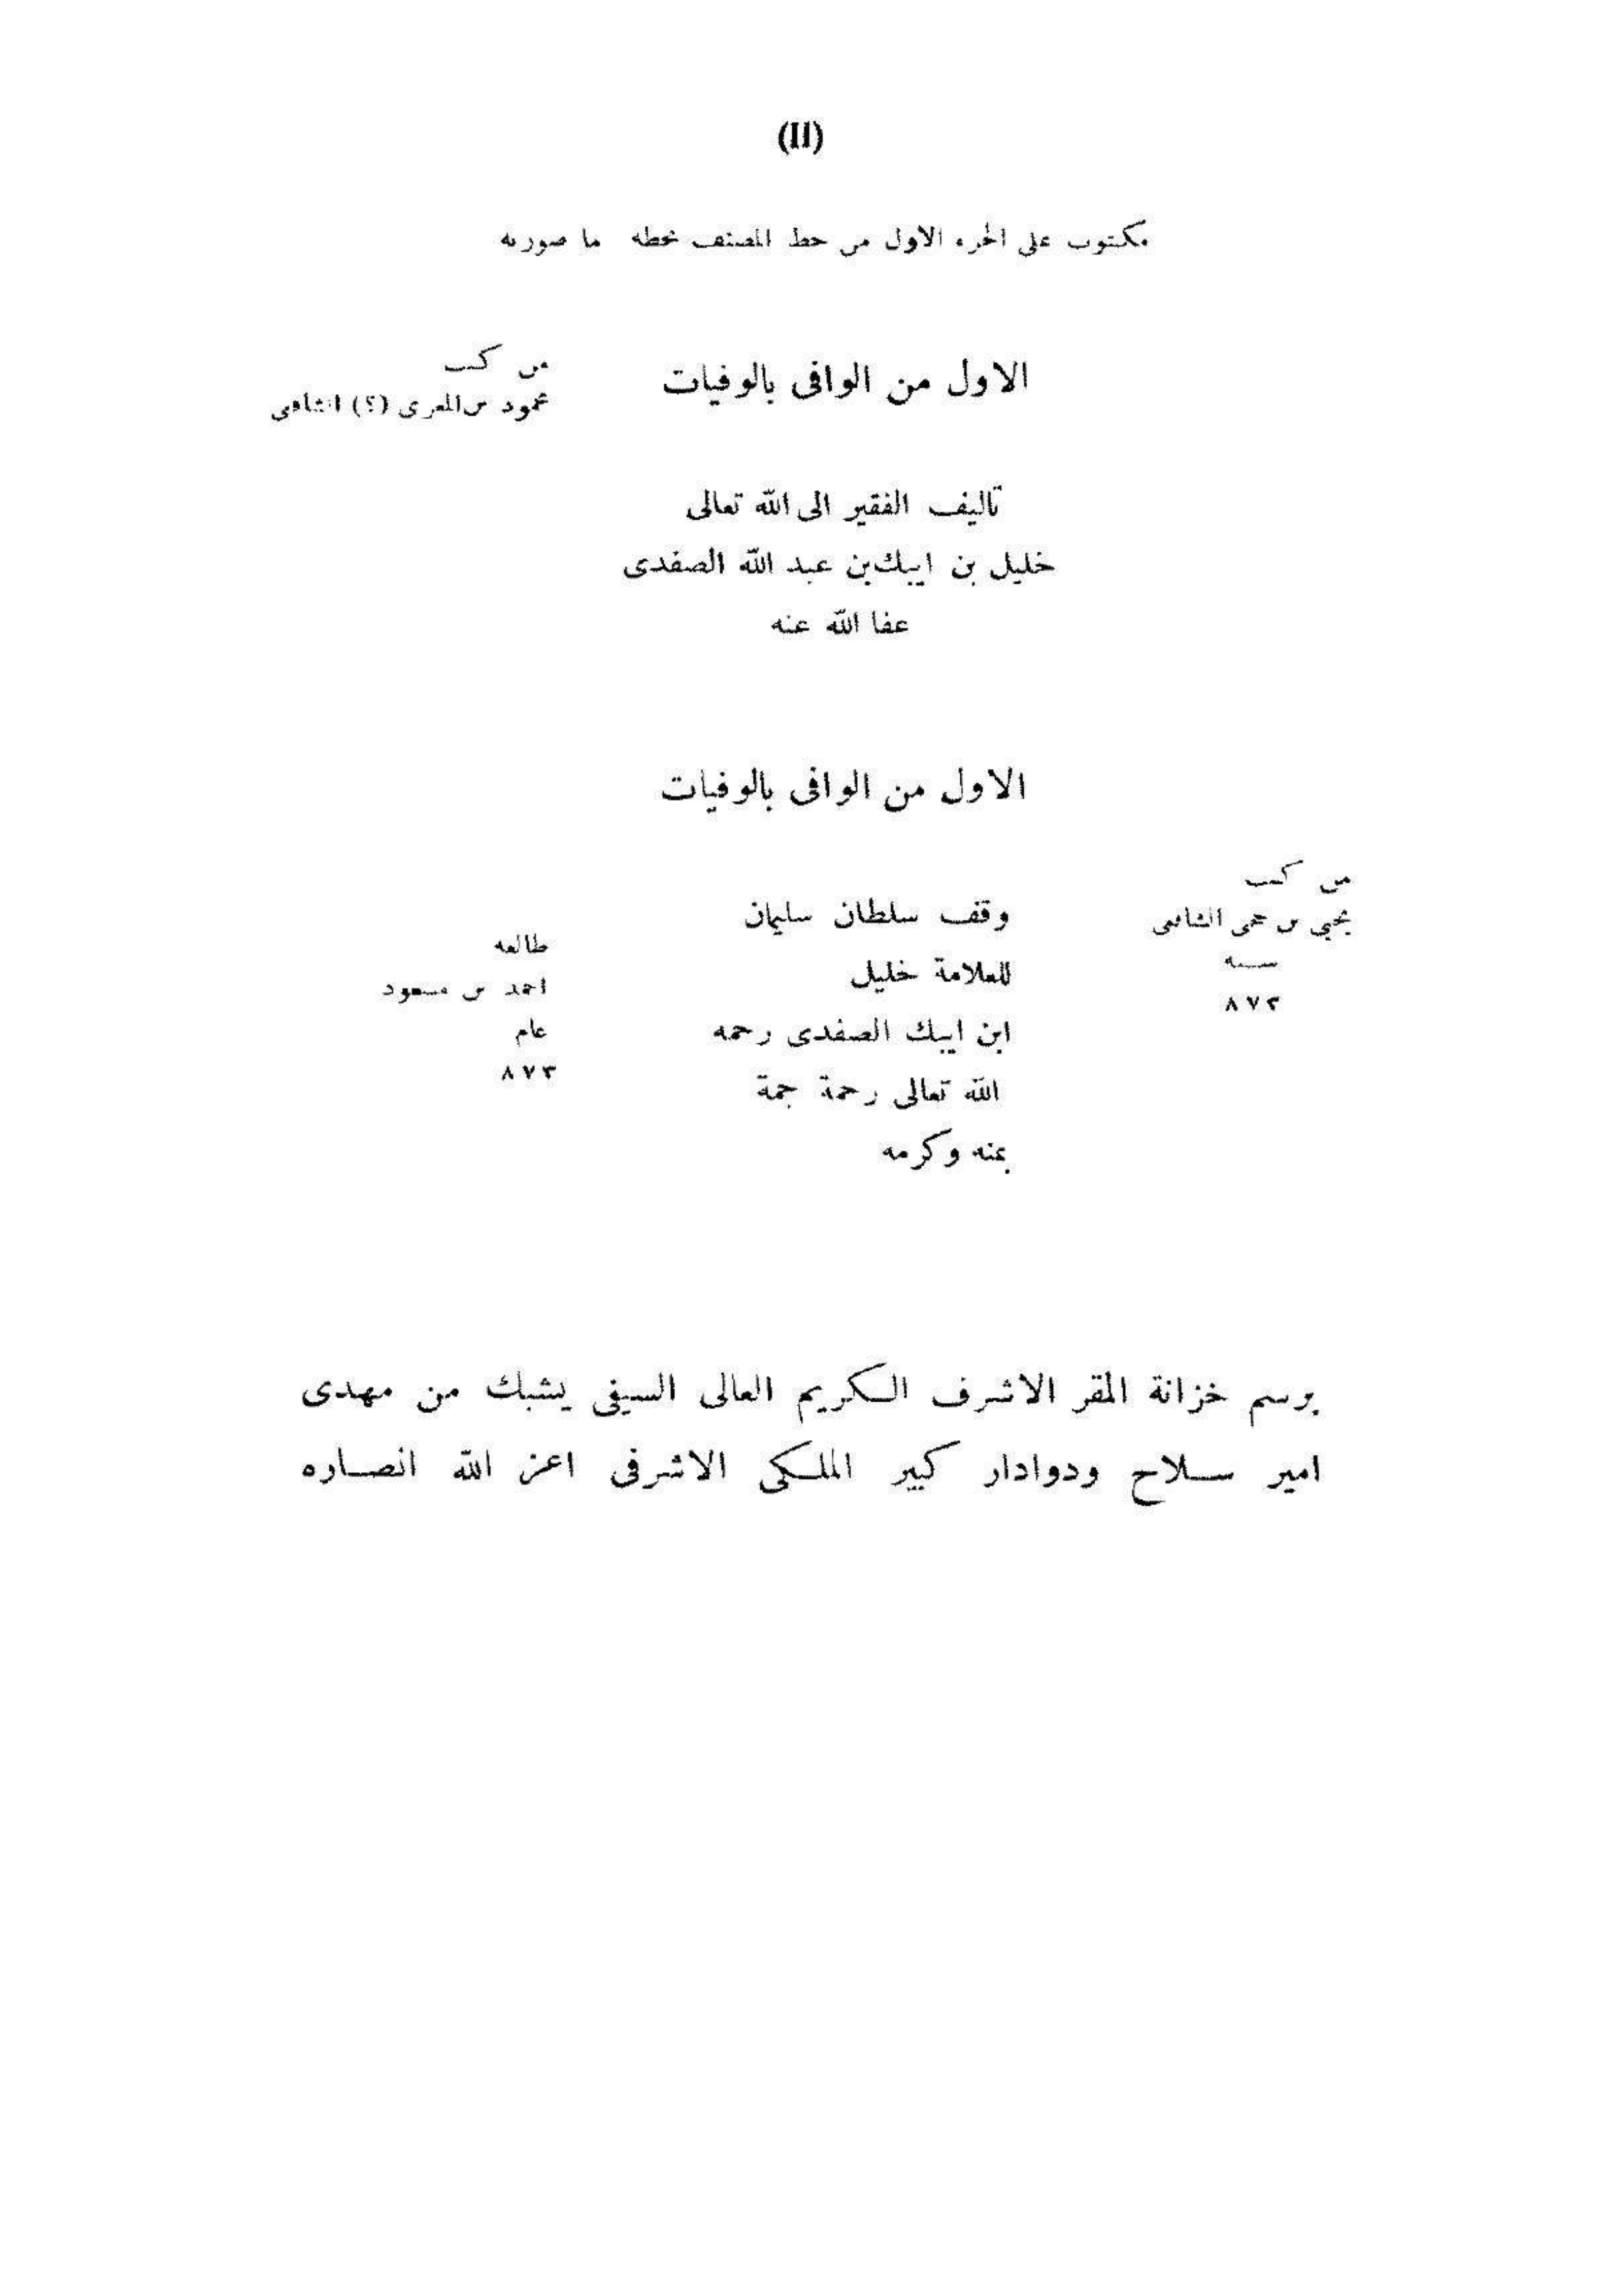 (II)
مكتوب على الجزء الاول من خط المصنف بخطه ما صورته
الاول من الوافى بالوفيات
من كتب
محمود بن المعرى (؟) الشافعى
تاليف الفقير الى الله تعالى
خليل بن ايبك بن عبد الله الصفدى
عفا الله عنه
الاول من الوافى بالوفيات
من كتب
يحيى بن حجى الشافعى
سنة
٨٧٢
وقف سلطان سليمان
للعلامة خليل
ابن ايبك الصفدى رحمه
الله تعالى رحمة جمة
بمنه وكرمه
طالعه
احمد بن مسعود
عام
٨٧٣
برسم خزانة المقر الاشرف الكريم العالى السيفى يشبك من مهدى
امير سلاح ودوادار كبير الملكى الاشرفى اعز الله انصاره